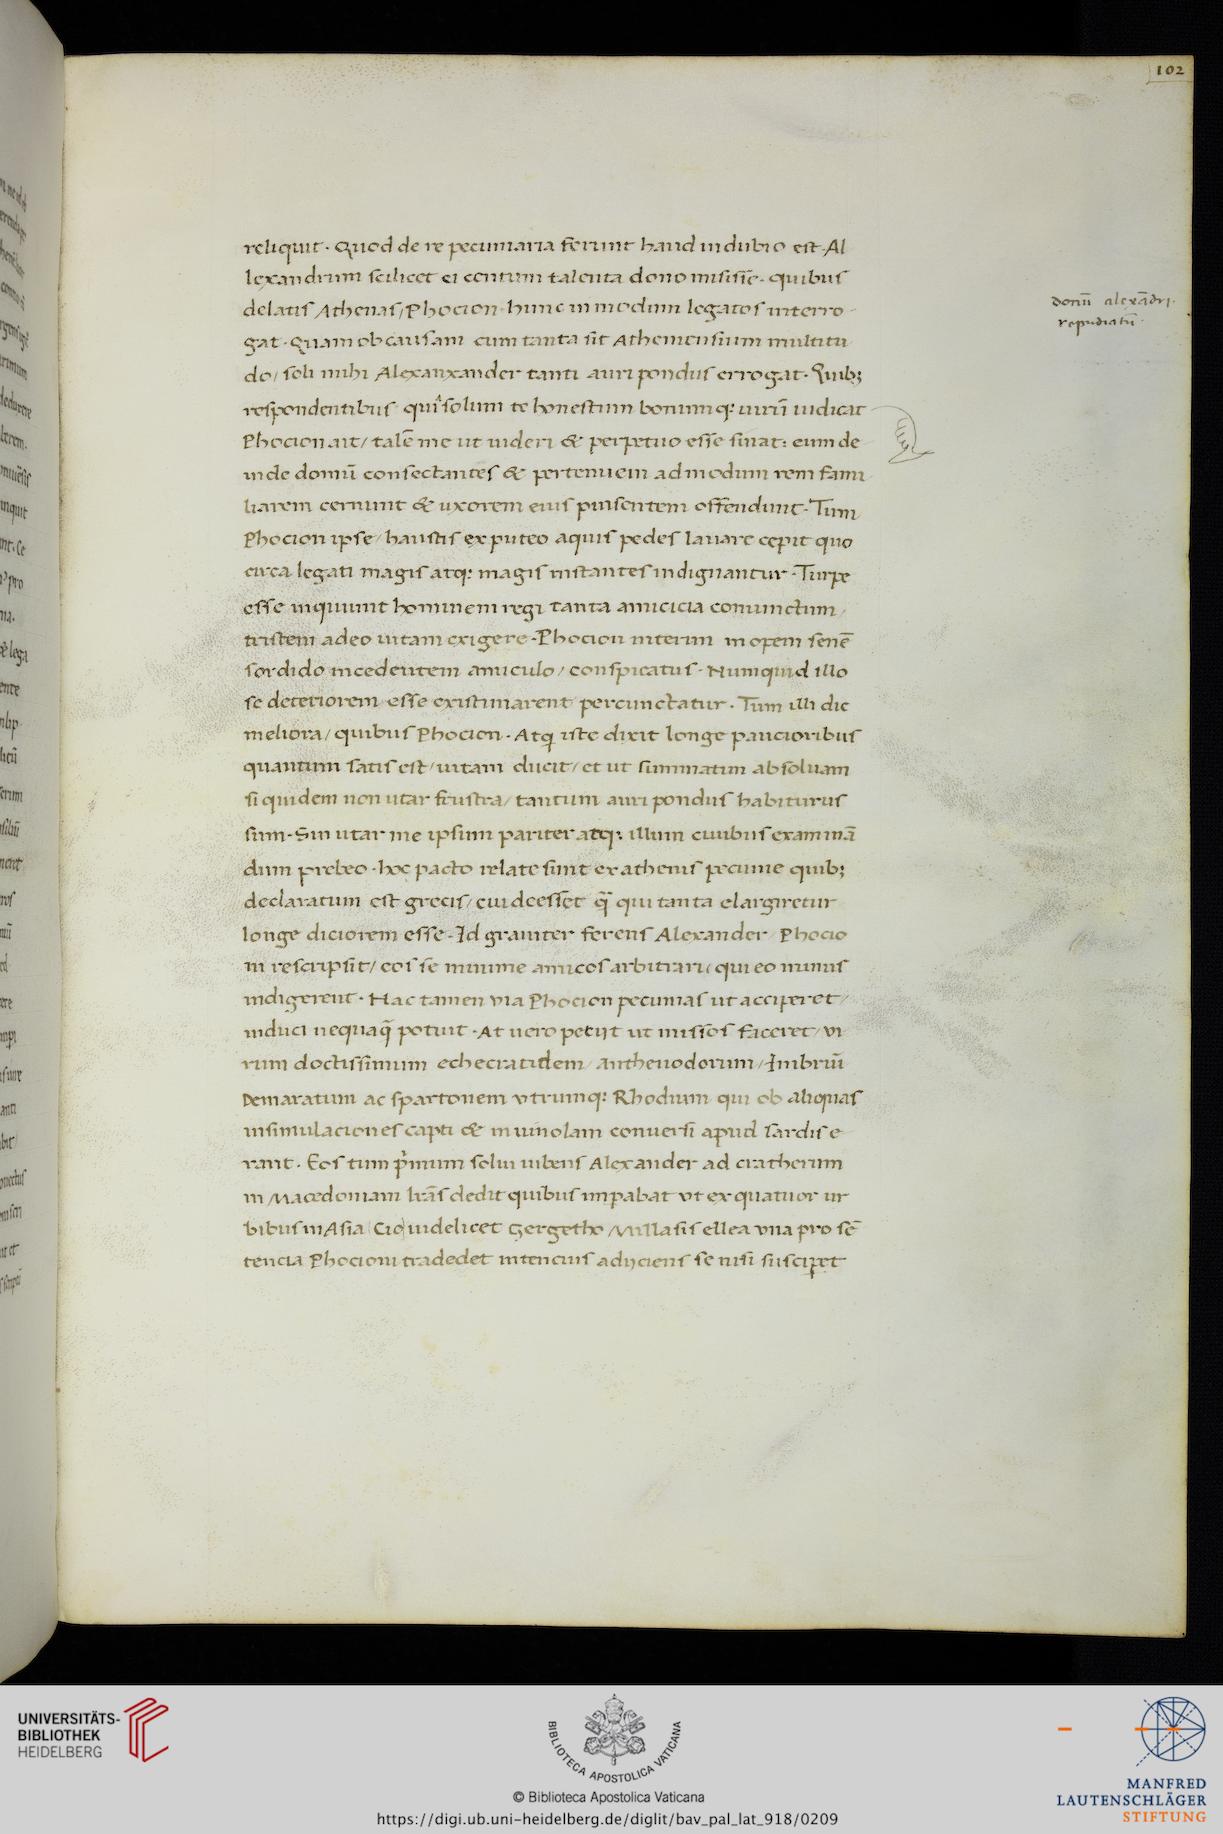 102
reliquit · Quod de re pecuniaria ferunt haud indubio est · Al
lexandrum scilicet ei centum talenta dono misisse · quibus
delatis Athenas / Phocion hunc in modum legatos interro
gat · Quam ob causam cum tanta sit Atheniensium multitu
do / soli mihi Alexanxander tanti auri pondus errogat · Quib;
respondentibus quia solum te honestum bonumq; uirū iudicat
Phocion ait / talē me ut uideri & perpetuo esse sinat : eum de
inde domū consectantes & pertenuem admodum rem fami
liarem cernunt & uxorem eius pinsentem offendunt · Tum
Phocion ipse / haustis ex puteo aquis pedes lauare cepit quo
circa legati magis atq; magis instantes indignantur · Turpe
esse inquiunt hominem regi tanta amicicia coniunctum /
tristem adeo uitam exigere · Phocion interim inopem senē
sordido incedentem amiculo / conspicatus · Numquid illo
se deteriorem esse existimarent percunctatur · Tum illi dic
meliora / quibus Phocion · Atqı iste dixit longe paucioribus
quantum satis est / uitam ducit / et ut summatim absoluam
si quidem non utar frustra / tantum auri pondus habiturus
sum · Sin utar me ipsum pariter atq; illum ciuibus examinā
dum prebeo · hoc pacto relate sunt ex athenis pecunie quib;
declaratum est grecis / cui deesset q̄ qui tanta elargiretur
longe diciorem esse · Id grauiter ferens Alexander Phocio
ni rescripsit / eos se minime amicos arbitrari / qui eo minus
indigerent · Hac tamen via Phocion pecunias ut acciperet /
induci nequaq̄ potuit · At uero petijt ut missos faceret / vi
rum doctissimum echecratidem / Anthenodorum / Imbriū
Demaratum ac spartonem vtrumq; Rhodium qui ob aliquas
insimulaciones capti & in uinolam conuersi apud sardis e
rant · Eos tum p̄mum solui iubens Alexander ad cratherum
in Macedoniam lr̄as dedit quibus imp̄abat vt ex quatuor ur
bibus in Asia Cio uidelicet Gergetho / Millasis ellea vna pro sē
tencia Phocioni tradedet intencius adijciens se nisi susciperet
donū alexādri ·
repudiatū ·
UNIVERSITÄTS-
BIBLIOTHEK
HEIDELBERG
BIBLIOTECA APOSTOLICA VATICANA
© Biblioteca Apostolica Vaticana
https://digi.ub.uni-heidelberg.de/diglit/bav_pal_lat_918/0209
MANFRED
LAUTENSCHLÄGER
STIFTUNG